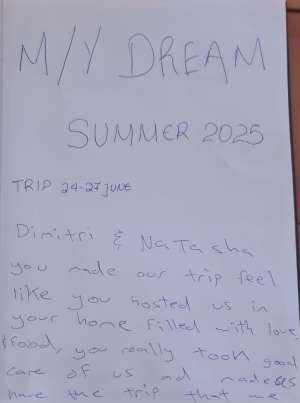 M/Y DREAM
SUMMER 2025
TRIP 24-27 JUNE
Dimitri & NaTasha
you made our trip feel
like you hosted us in
your home filled with love,
& food, you really took good
care of us and made us
have the trip that we